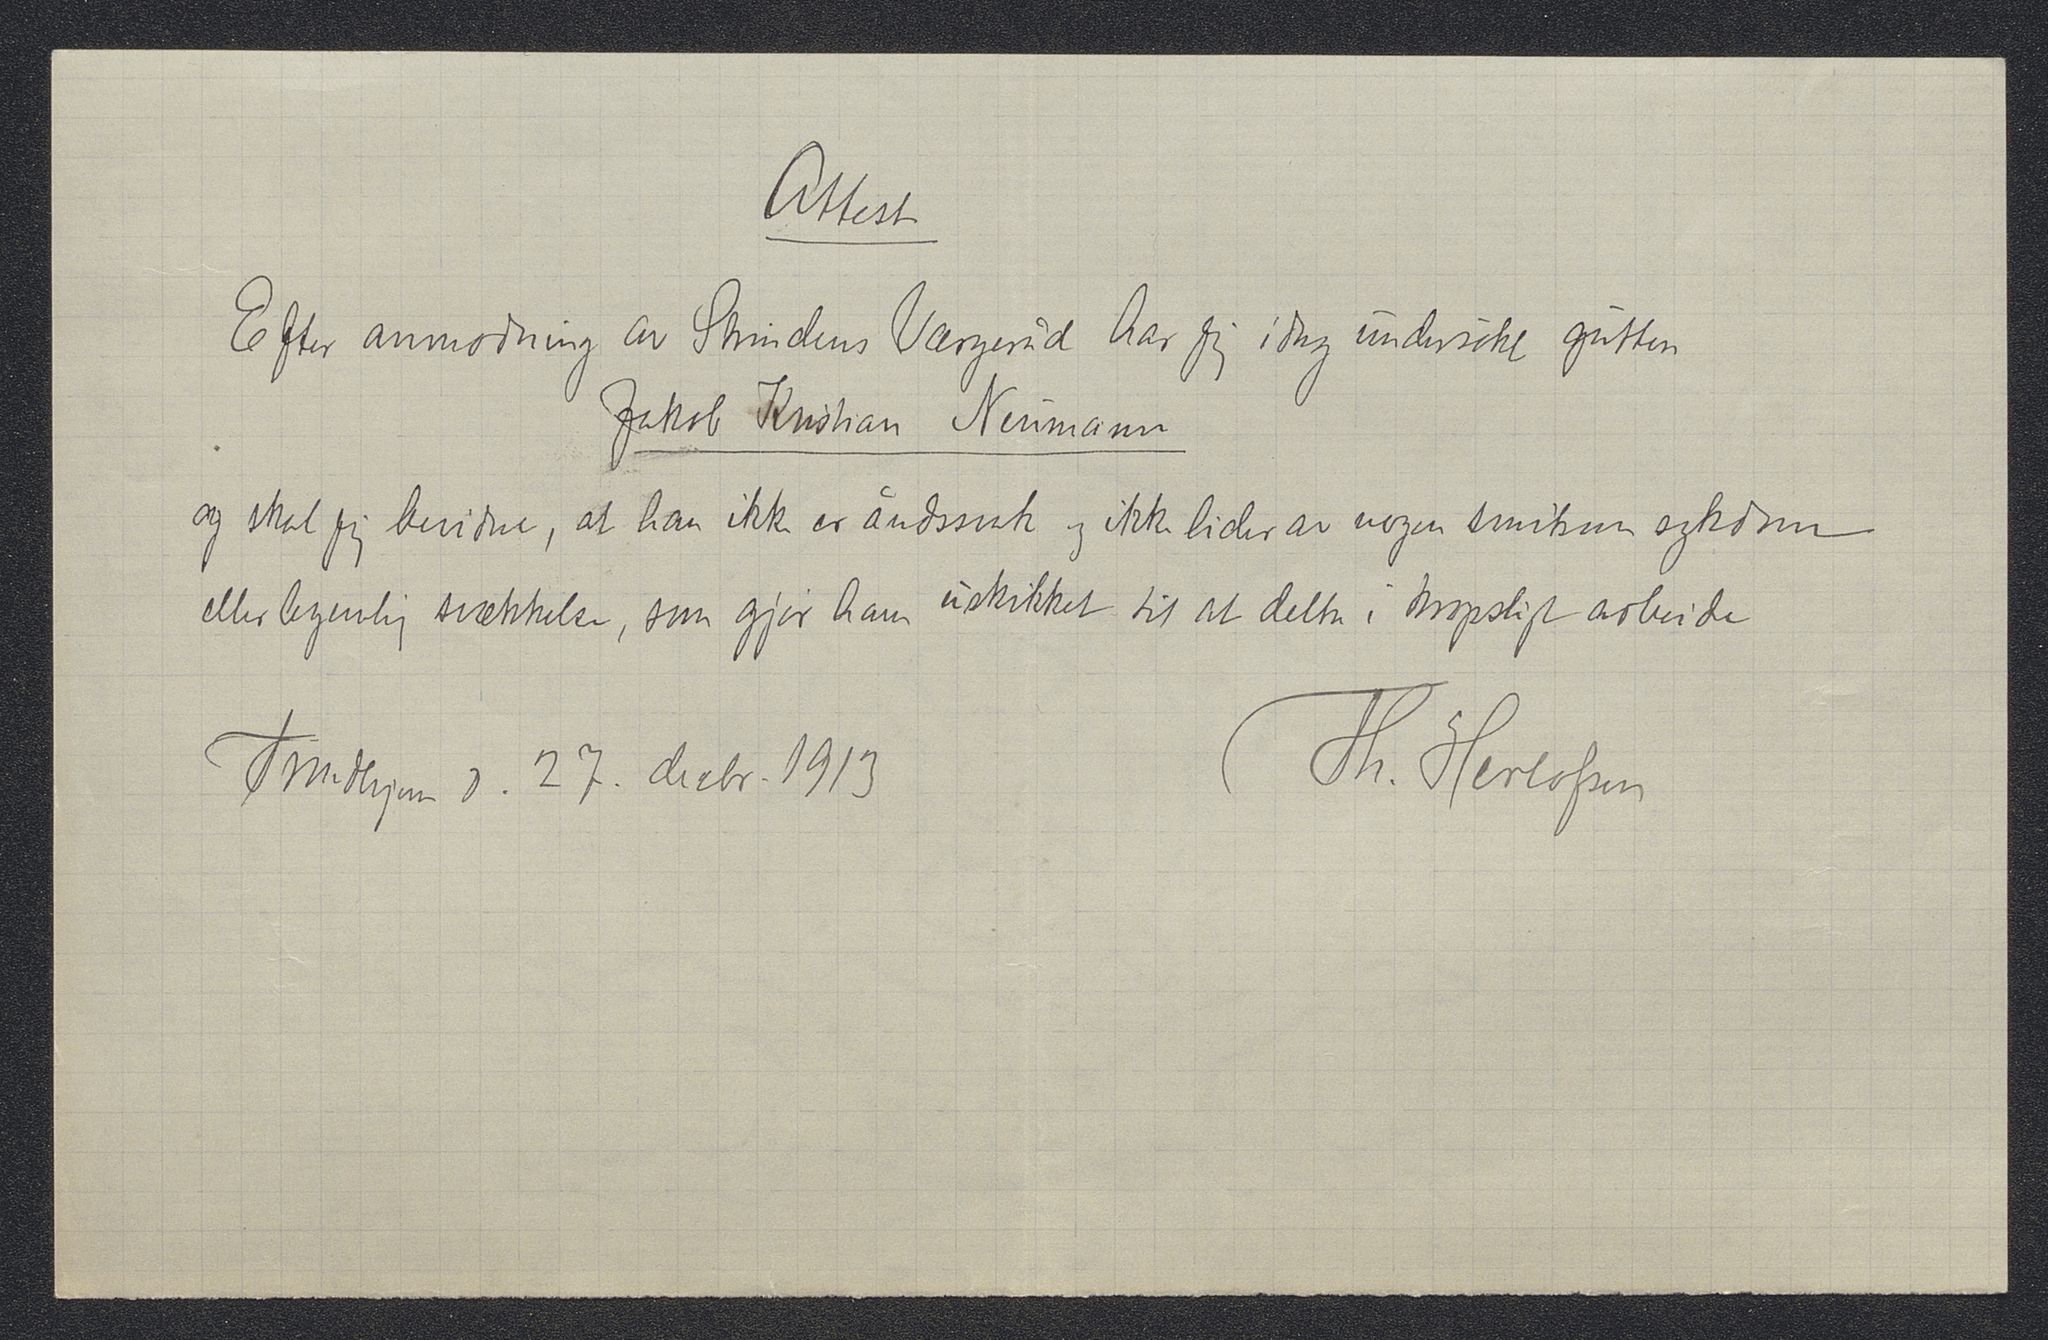 Attest
Efter anmodning av Strindens Værgeråd har jeg idag undersøkt gutten
Jakob Kristian Neumann
og skal jeg bevidne, at han ikke er åndssvak og ikke lider av nogen smitsom sykdom
eller legemlig svækkelse, som gjør ham uskikket til at delta i kropsligt arbeide
Trondhjem d. 27. decbr. 1913
Th. Herlofsen